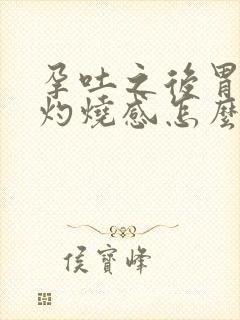 孕吐之後胃
灼燒感怎麼
侯寶峰